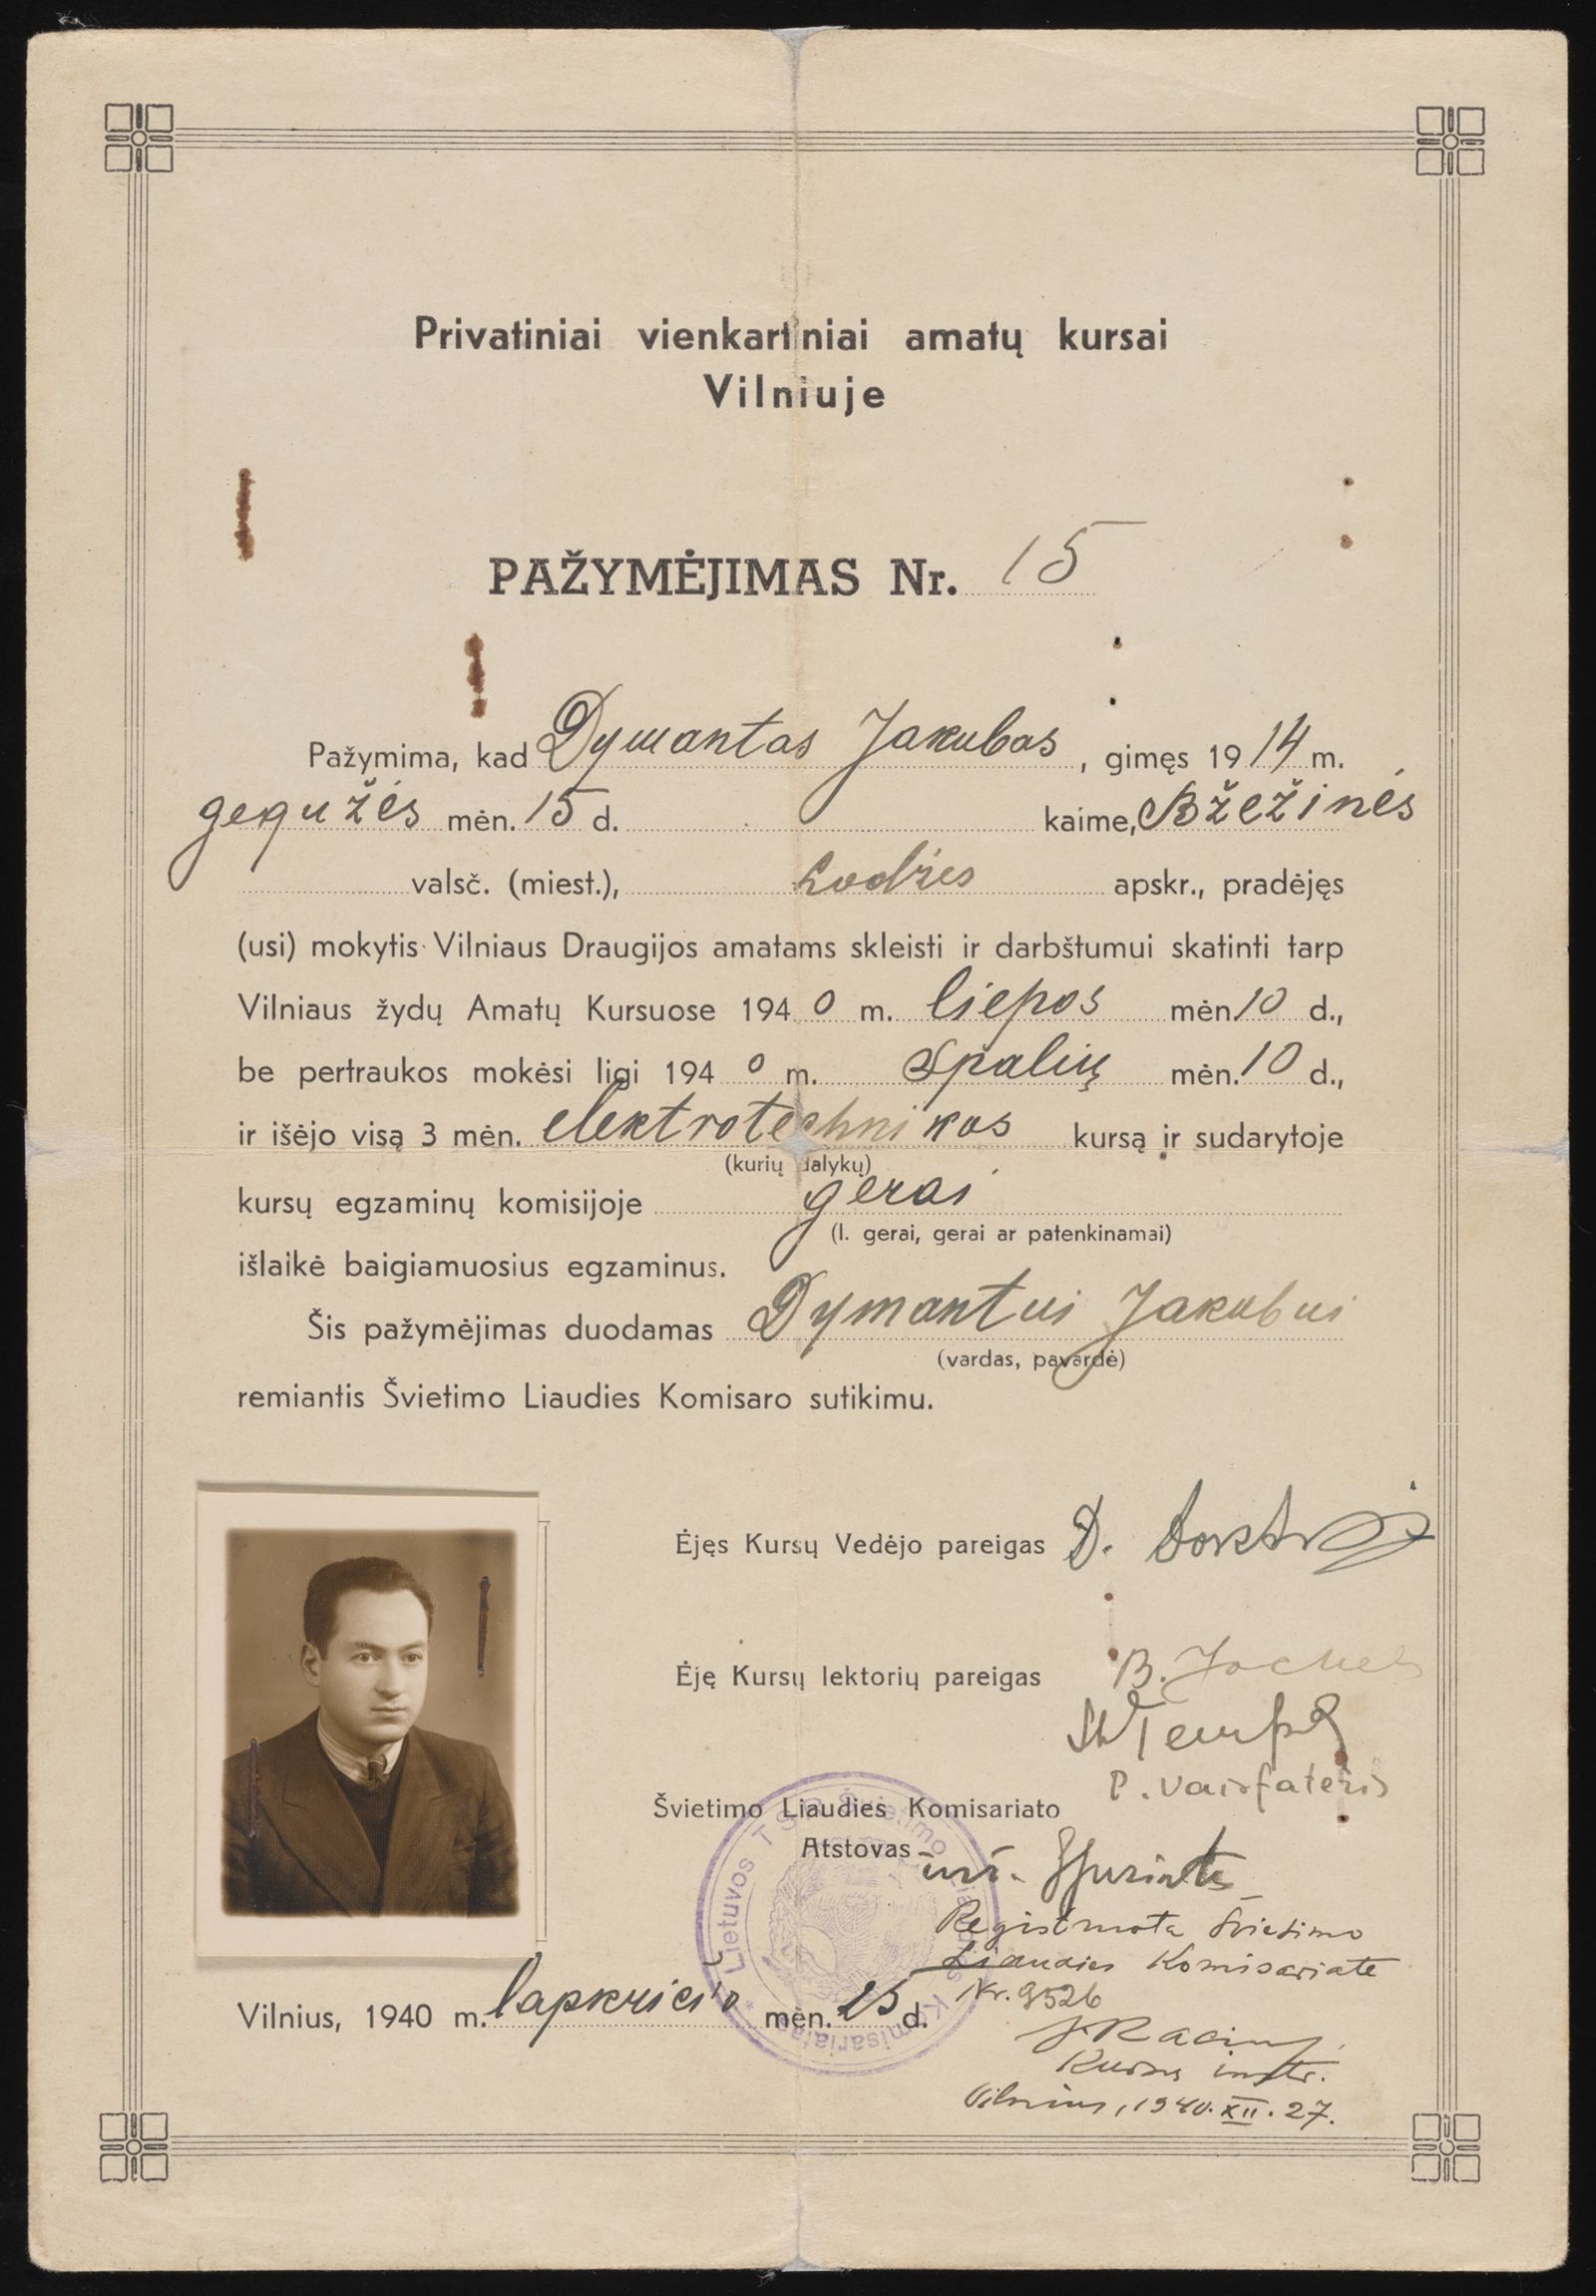 Privatiniai vienkartiniai amatų kursai
Vilniuje
PAŽYMĖJIMAS Nr. 15
Pažymima, kad Dymantas Jakubas, gimęs 1914 m.
gegužės mėn. 15 d. kaime, Bžežinės
valsč. (miest.), Lodzės apskr., pradėjęs
(usi) mokytis Vilniaus Draugijos amatams skleisti ir darbštumui skatinti tarp
Vilniaus žydų Amatų Kursuose 1940 m. liepos mėn 10 d.,
be pertraukos mokėsi ligi 1940 m. spalių mėn. 10 d.,
ir išėjo visą 3 mėn. elektrotechnikos kursą ir sudarytoje
(kurių dalykų)
kursų egzaminų komisijoje gerai
(l. gerai, gerai ar patenkinamai)
išlaikė baigiamuosius egzaminus.
Šis pažymėjimas duodamas Dymantui Jakubui
(vardas, pavardė)
remiantis Švietimo Liaudies Komisaro sutikimu.
Ėjęs Kursų Vedėjo pareigas D.
Ėję Kursų lektorių pareigas B.
P. Vaisfateris
Švietimo Liaudies Komisariato
Atstovas
Lietuvos TSR Švietimo Liaudies Komisariatas
Registruota Švietimo
Liaudies Komisariate
Nr. 9526
Kursų instr.
Vilnius, 1940 m. lapkričio mėn. 25 d.
Vilnius, 1940.XII.27.